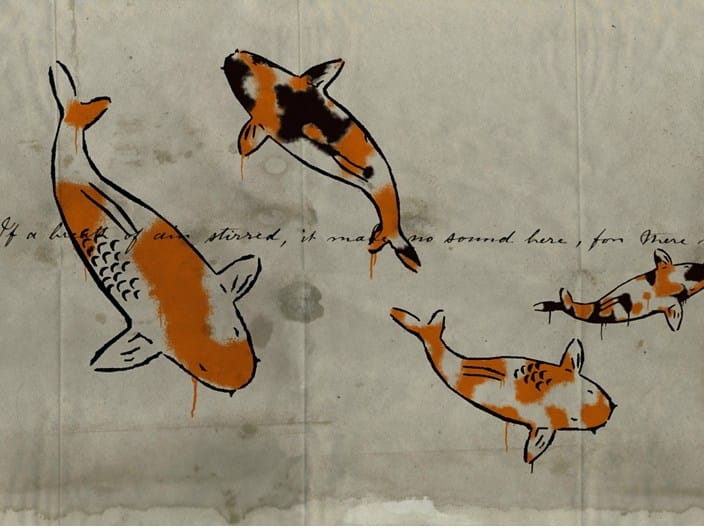 If a breath of air stirred, it made no sound here, for there